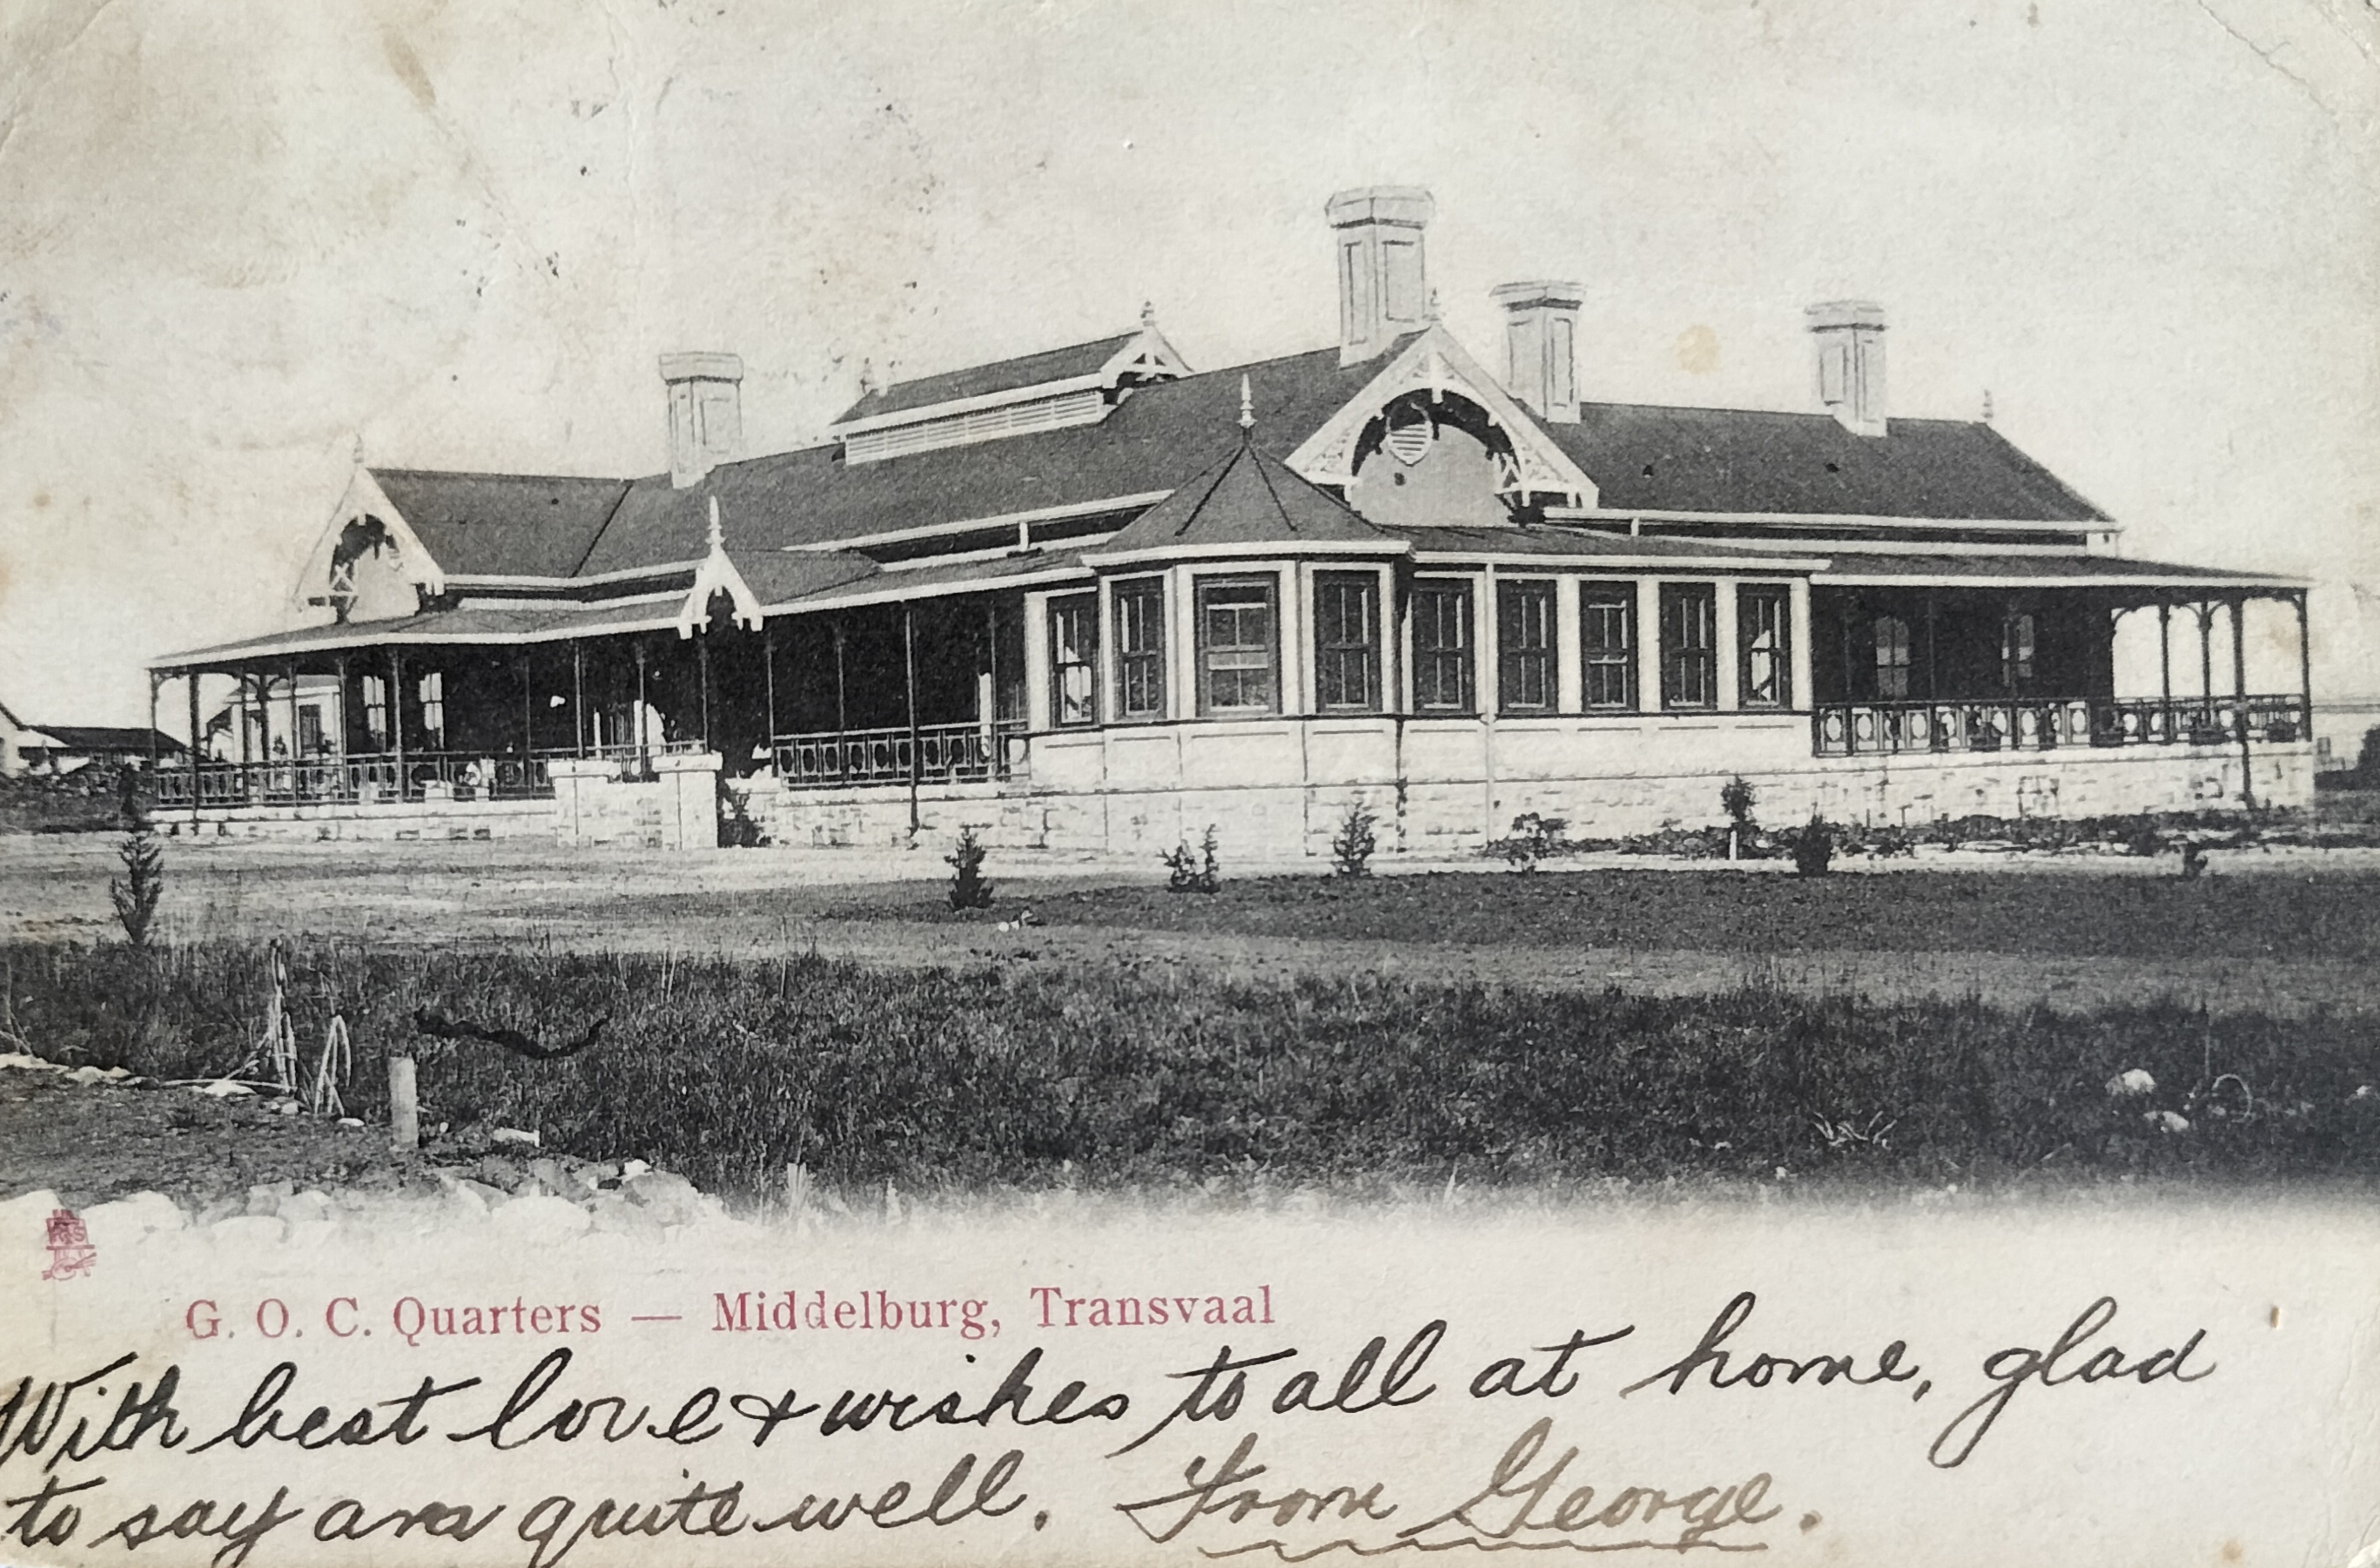 G. O. C. Quarters — Middelburg, Transvaal
With best love & wishes to all at home, glad
to say am quite well. From George.